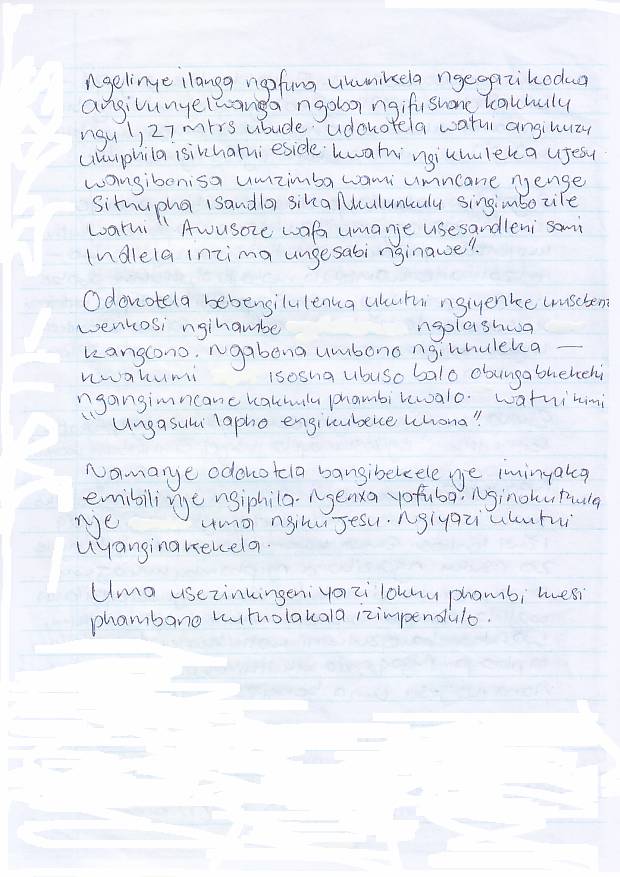 Ngelinye ilanga ngafuna ukunikela ngegazi kodwa
angivunyelwanga ngoba ngifushane kakhulu
ngu 1,27 mtrs ubude. Udokotela wathi angikuzu
ukuphila isikhathi eside. kwathi ngikhuleka ujesu
wangibonisa umzimba wami umncane njenge
Sithupha isandla sika Nkulunkulu singimbozile
wathi " Awusoze wafa umanje usesandleni sami
Indlela inzima ungesabi nginawe".
Odokotela bebengilulenka ukuthi ngiyenke umseben
wenkosi ngihambe ngolaishwa
kangcono. Ngabona umbono ngikhuleka —
kwakumi isosha ubuso balo obungabhekeki
ngangimncane kakhulu phambi kwalo. wathi kimi
"Ungasuki lapho engikubeke khona".
Namanje odokotela bangibekele nje iminyaka
emibili nje ngiphila. Ngenxa yofuba. Nginokuthula
nje uma ngiku Jesu. Ngiyazi ukuthi
uyanginakekela.
Uma usezinkingeni yazi lokhu phambi kwesi
phambano kutholakala izimpendulo.